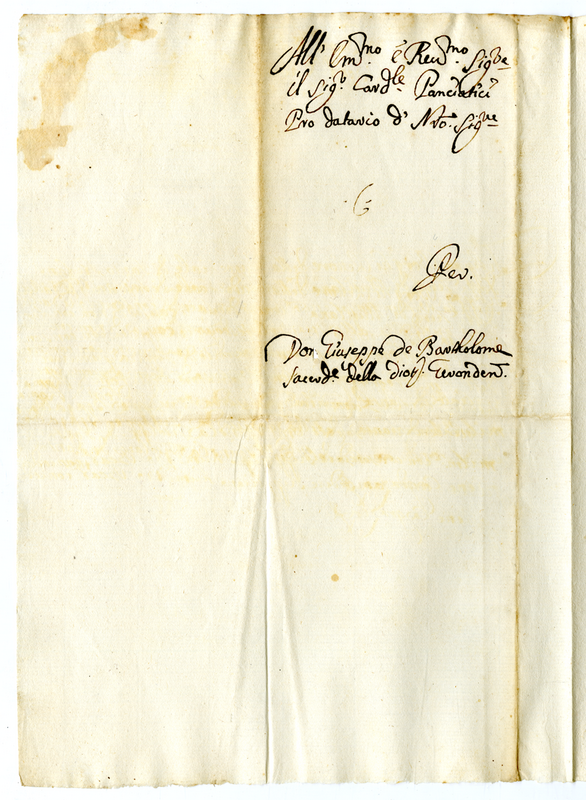 All' Em.mo é Reu.mo Sig.re
il Sig.r Card.le Panciatici
Pro datario d' Nro. Sig.re
Per.
Don Giuseppe de Bartholome
sacerd.e della dioc.